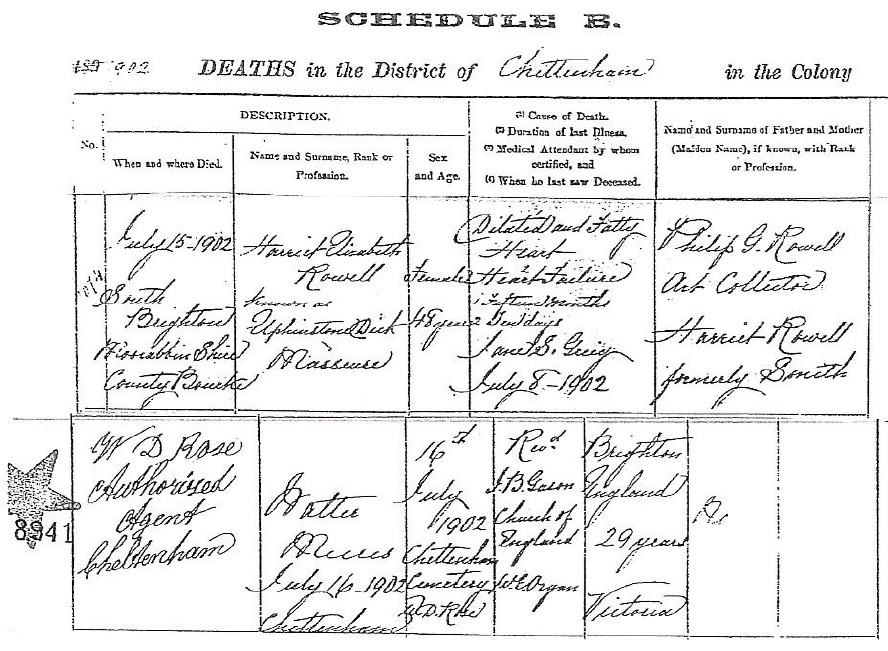 SCHEDULE B.
1902 DEATHS in the District of Cheltenham in the Colony
No.
DESCRIPTION.
When and where Died.
Name and Surname, Rank or
Profession.
Sex
and Age.
(1) Cause of Death.
(2) Duration of last Illness.
(3) Medical Attendant by whom
certified, and
(4) When he last saw Deceased.
Name and Surname of Father and Mother
(Maiden Name), if known, with Rank
or Profession.
July 15-1902
South
Brighton
Moorabbin Shire
County Bourke
Harriet Elizabeth
Rowell
known as
Elphinstone Dick
Masseuse
Female
48 years
Dilated and Fatty
Heart
Heart Failure
1 Fifteen Months
2 days
Janet S. Greig
July 8-1902
Philip G. Rowell
Art Collector
Harriet Rowell
formerly Smith
8941
W D Rose
Authorised
Agent
Cheltenham
Walter
July 16-1902
Cheltenham
16th
July
1902
Cheltenham
Cemetery
W.D. Rose
Revd
J.B. Gason
Church of
England
W.E. Organ
Brighton
England
29 years
Victoria